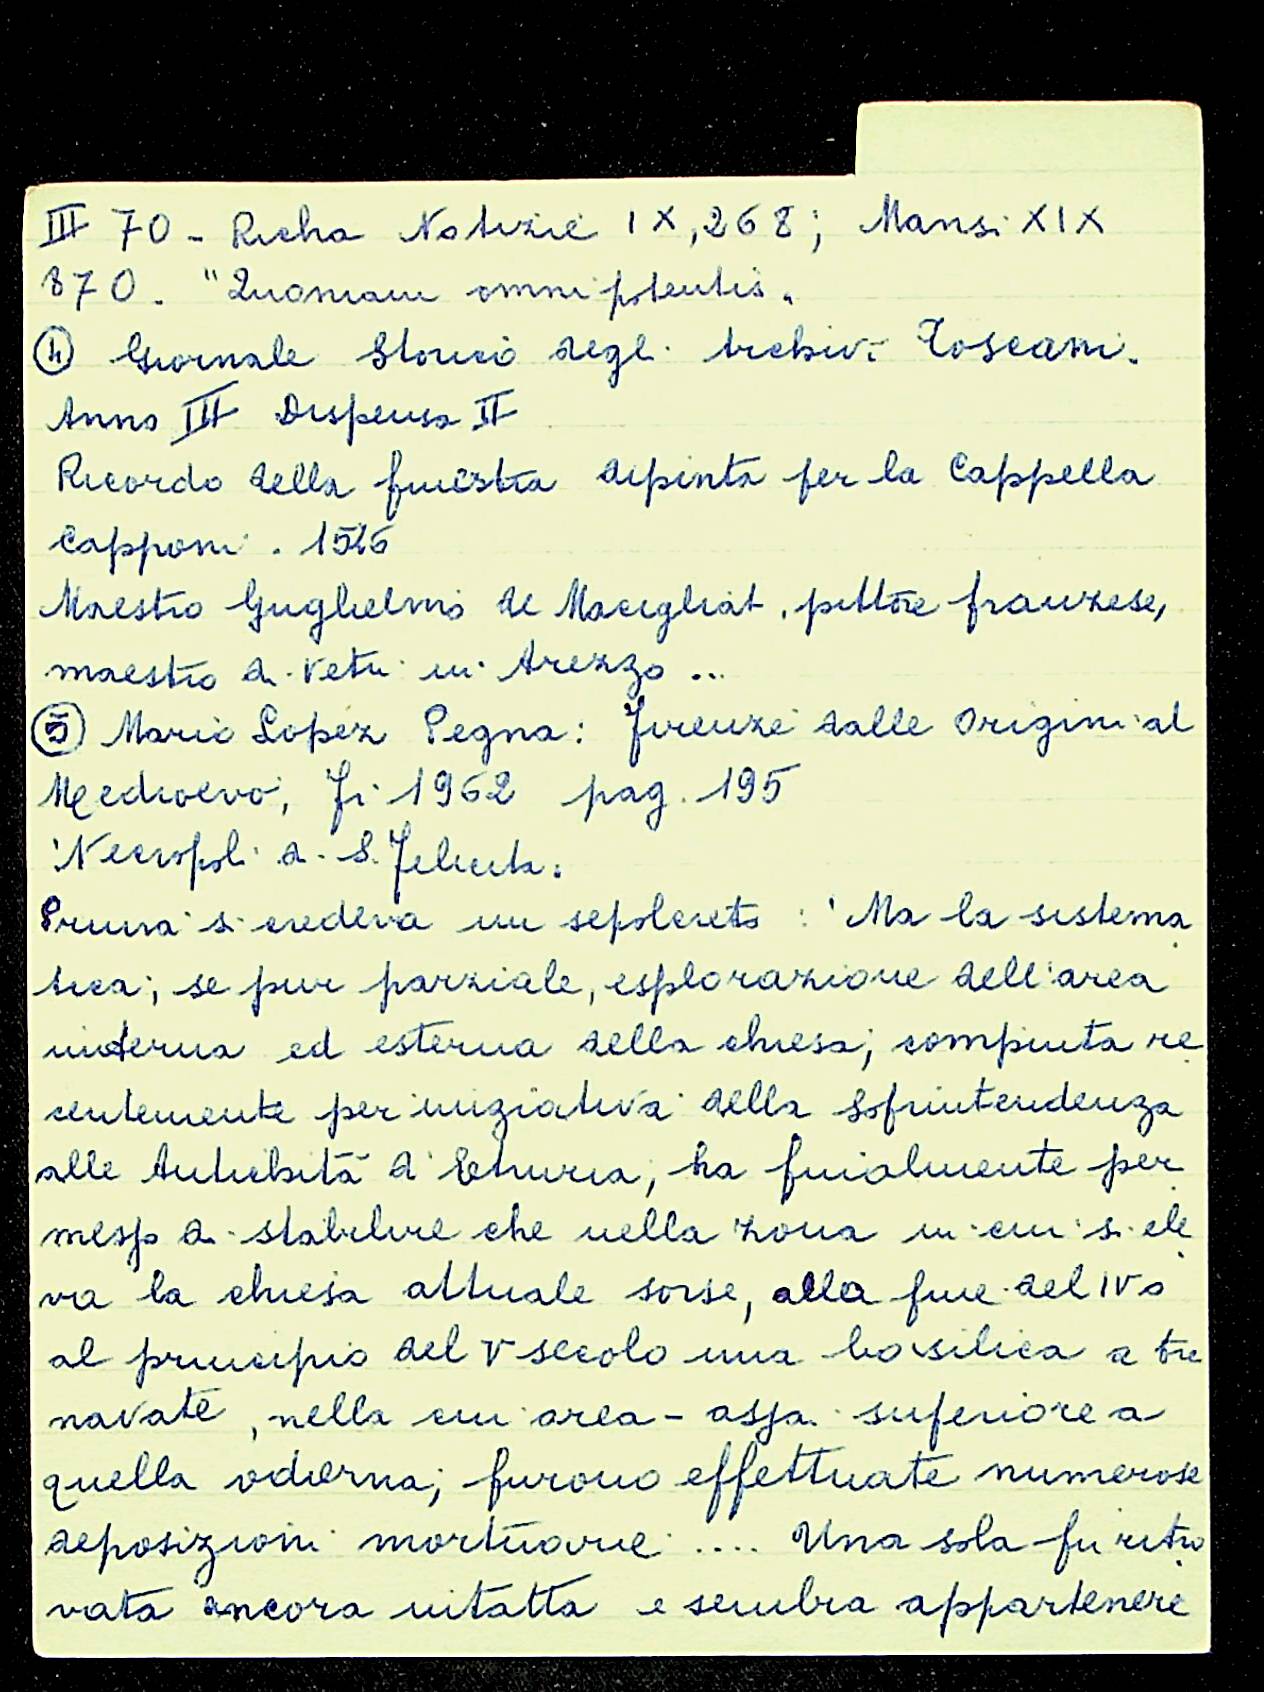 III 70 - Richa Notizie IX, 268; Mansi XIX
870. "Quoniam omnipotentis"
④ Giornale Storico degli Archivi Toscani.
Anno III Dispensa II
Ricordo della finestra dipinta per la Cappella
Capponi. 1526
Maestro Guglielmo de Macigliat, pittore franzese,
maestro di vetri in Arezzo ...
⑤ Mario Lopez Pegna: Firenze dalle Origini al
Medioevo, Fi 1962 pag. 195
'Necropoli di S. Felicita.
Prima si credeva un sepolcreto: 'Ma la sistema
tica, se pur parziale, esplorazione dell'area
interna ed esterna della chiesa, compiuta re
centemente per iniziativa della Sofrintendenza
alle Antichità d'Etruria, ha finalmente per
messo di stabilire che nella zona in cui si ele
va la chiesa attuale sorse, alla fine del IV o
al principio del V secolo una basilica a tre
navate, nella cui area - assai superiore a
quella odierna, furono effettuate numerose
deposizioni mortuarie .... Una sola fu ritro
vata ancora intatta e sembra appartenere